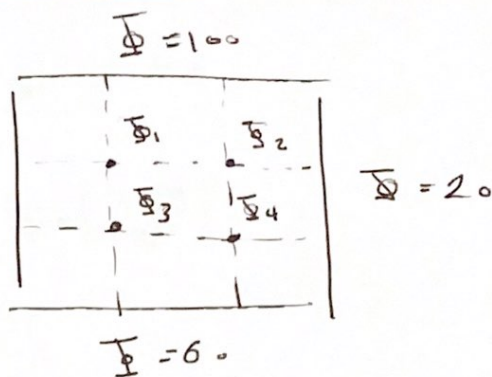 Φ = 100
Φ1 Φ2
Φ3 Φ4
Φ = 20
Φ = 60